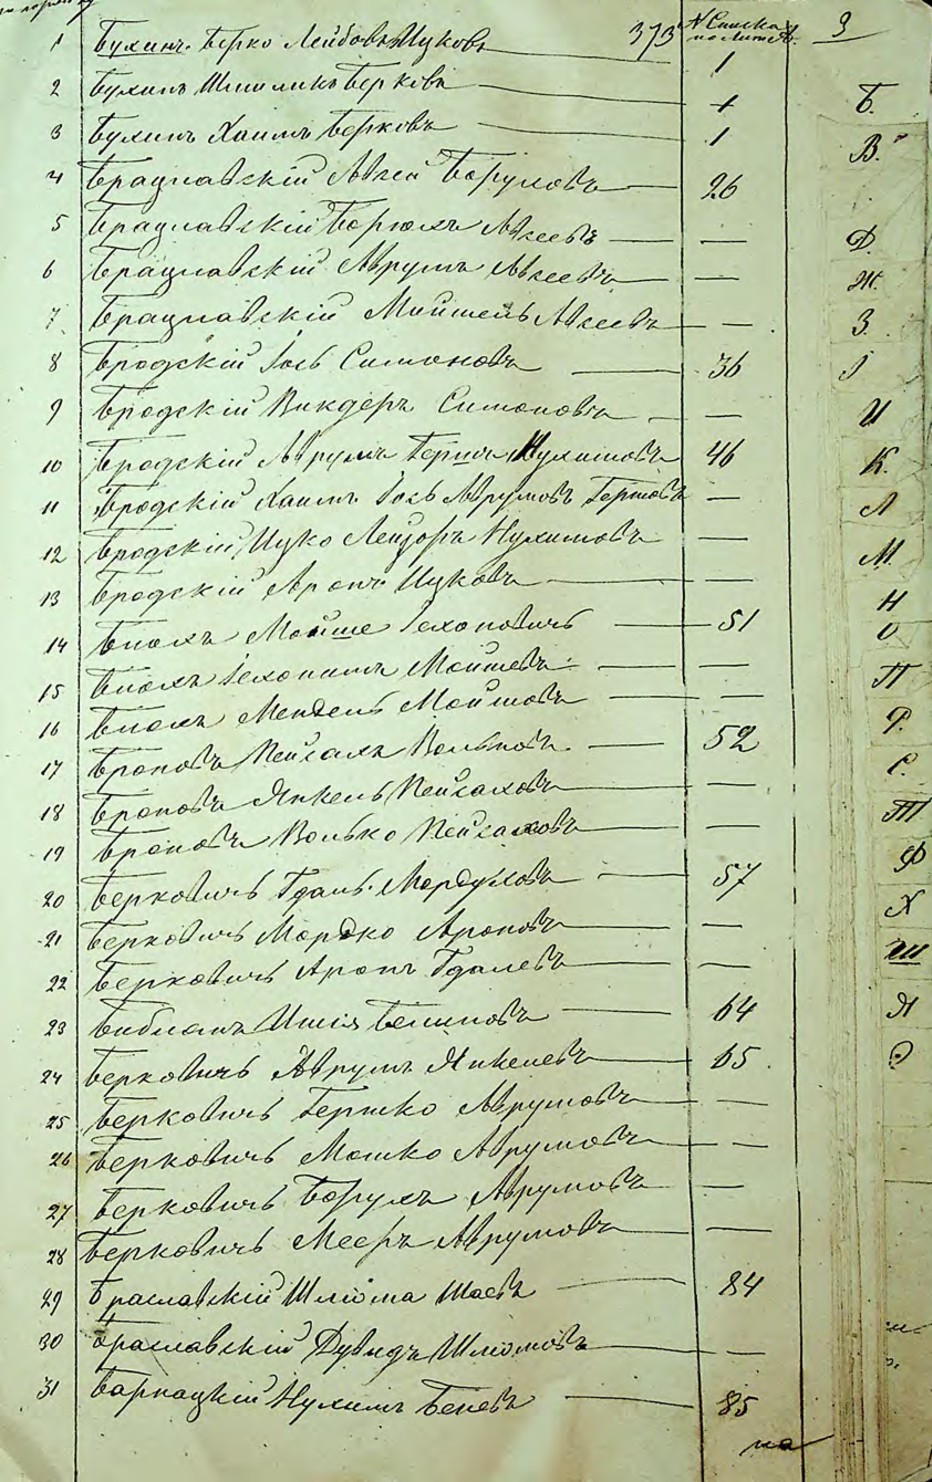 № Списка 3
1 Бухинъ Берко Лейбовъ Ицковъ 373 1
2 Бухинъ Шмиликъ Берковъ — 1
3 Бухинъ Хаимъ Берковъ — 1
4 Брацлавскій Авсей Боруховъ — 26
5 Брацлавскій Борюхъ Авсеевъ — —
6 Брацлавскій Аврумъ Авсеевъ — —
7 Брацлавскій Мойшель Авсеевъ — —
8 Бродскій Іось Симоновъ — 36
9 Бродскій Викдеръ Симоновъ — —
10 Бродскій Аврумъ Гершъ Нухимовъ 46
11 Бродскій Хаимъ Іось Аврумовъ Гершовъ —
12 Бродскій Ицко Лейзоръ Нухимовъ —
13 Бродскій Аронъ Ицковъ — —
14 Блохъ Мойше Іехоновичъ — 51
15 Блохъ Іехонимъ Мойшевъ — —
16 Блохъ Мендель Мойшовъ — —
17 Броновъ Пейсахъ Вольковъ — 52
18 Броновъ Янкель Пейсаховъ —
19 Броновъ Волько Пейсаховъ — —
20 Берковичъ Гдаль Мордуховъ — 57
21 Берковичъ Мордко Ароновъ — —
22 Берковичъ Аронъ Гдалевъ — —
23 Бибманъ Ишія Бениновъ — 64
24 Берковичъ Аврумъ Янкелевъ — 65
25 Берковичъ Гершко Аврумовъ — —
26 Берковичъ Мошко Аврумовъ — —
27 Берковичъ Борухъ Аврумовъ — —
28 Берковичъ Мееръ Аврумовъ — —
29 Браславскій Шліома Шаевъ — 84
30 Браславскій Дувидъ Шліомовъ — —
31 Барнацкій Нухимъ Беневъ — 85
на
Б.
В.
Д.
Ж.
З.
І
И
К.
Л
М.
Н
О
П
Р.
С.
Т
Ф
Х
Ш
Я
Э